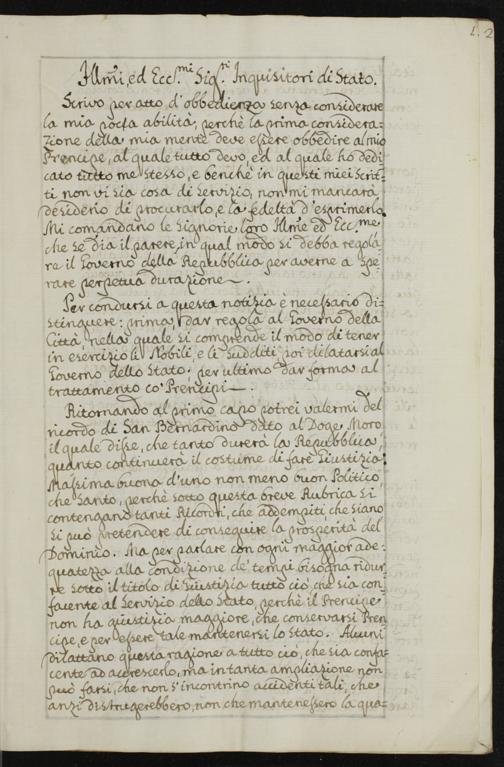 1. 2
Illmi, ed Ecc.mi Sig.ri Inquisitori di Stato.
Scrivo per atto d'obbedienza senza considerare
la mia poca abilità, perchè la prima considera-
zione della mia mente deve essere obbedire al mio
Prencipe, al quale tutto devo, ed al quale ho dedi-
cato tutto me stesso, e benchè in questi miei Scrit-
ti non vi sia cosa di servizio, non mi mancarà
desiderio di procurarlo, e la fedeltà d'esprimerlo.
Mi comandano le Signorie loro Illme ed Ecc.me
che se dia il parere, in qual modo si debba regola-
re il Governo della Repubblica per averne a spe-
rare perpetua durazione.
Per condursi a questa notizia è necessario di-
stinguere: prima, dar regola al Governo della
Città, nella quale si comprende il modo di tener
in esercizio li Nobili, e li sudditi, poi delatarsi al
Governo dello Stato: per ultimo dar forma al
trattamento co' Prencipi.
Ritornando al primo capo potrei valermi del
ricordo di San Bernardino dato al Doge Moro
il quale disse, che tanto durerà la Repubblica,
quanto continuerà il costume di fare Giustizia.
Massima buona d'uno non meno buon Politico,
che Santo, perchè sotto questa breve Rubrica si
contengano tanti Ricordi, che addempiti che siano
si può pretendere di conseguire la prosperità del
Dominio. Ma per parlare con ogni maggior ade-
quatezza alla condizione de' tempi bisogna ridur-
re sotto il titolo di Giustizia tutto ciò, che sia con-
facente al Servizio dello Stato, perchè il Prencipe
non ha giustizia maggiore, che conservarsi Pren-
cipe, e per essere tale mantenersi lo Stato. Alcuni
dilattano questa ragione a tutto ciò, che sia confa-
cente ad accrescerlo, ma in tanta ampliazione non
può farsi, che non s'incontrino accidenti tali, che
anzi distrugerebbero, non che mantenessero la qua-